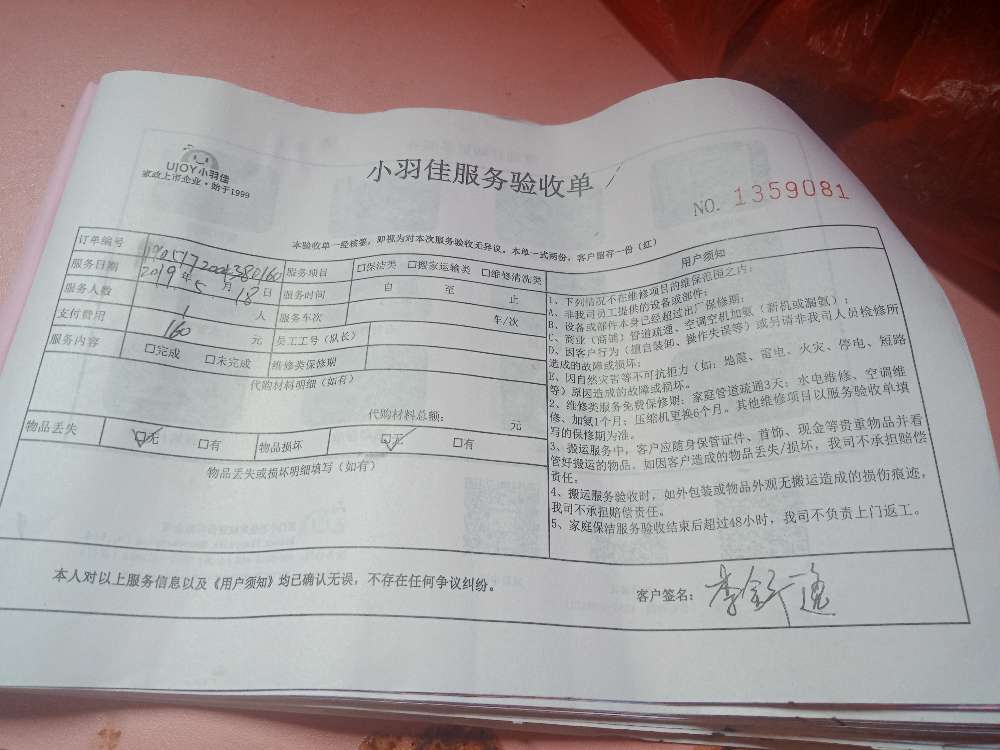 UJOY小羽佳
家政上市企业·始于1999
小羽佳服务验收单
NO. 1359081
本验收单一经核要，即视为对本次服务验收无异议。本单一式两份，客户留存一份（红）
订单编号
服务项目 □保洁类 □搬家运输类 □维修清洗类
服务日期 2019年5月18日 服务时间 自 至 止
服务人数 1 人 服务车次 车/次
支付费用 160 元 员工工号（队长）
服务内容 □完成 □未完成 维修类保修期
代购材料明细（如有）
代购材料总额： 元
物品丢失 ☑无 □有 物品损坏 ☑无 □有
物品丢失或损坏明细填写（如有）
用户须知
1、下列情况不在维修项目的维保范围之内：
A、非我司员工提供的设备或部件；
B、设备或部件本身已经超过出厂保修期；
C、商业（商铺）管道疏通、空调空机加氨（新机或漏氨）；
D、因客户行为（擅自装卸、操作失误等）或另请非我司人员检修所
造成的故障或损坏；
E、因自然灾害等不可抗拒力（如：地震、雷电、火灾、停电、短路
等）原因造成的故障或损坏。
2、维修类服务免费保修期：家庭管道疏通3天；水电维修、空调维
修、加氨1个月；压缩机更换6个月。其他维修项目以服务验收单填
写的保修期为准。
3、搬运服务中，客户应随身保管证件、首饰、现金等贵重物品并看
管好搬运的物品。如因客户造成的物品丢失/损坏，我司不承担赔偿
责任。
4、搬运服务验收时，如外包装或物品外观无搬运造成的损伤痕迹，
我司不承担赔偿责任。
5、家庭保洁服务验收结束后超过48小时，我司不负责上门返工。
本人对以上服务信息以及《用户须知》均已确认无误，不存在任何争议纠纷。
客户签名：